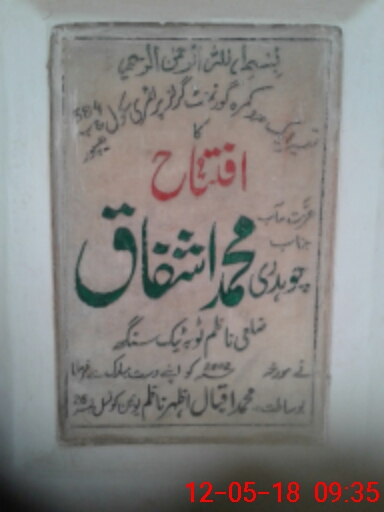 بسم اللہ الرحمن الرحیم
کمرہ گورنمنٹ گرلز پرائمری سکول 584
کا
افتتاح
عزت مآب
جناب
چوہدری محمد اشفاق
ضلعی ناظم ٹوبہ ٹیک سنگھ
نے مورخہ کو اپنے دست مبارک سے فرمایا
بوساطت۔ محمد اقبال اظہر ناظم یونین کونسل 26
12-05-18 09:35